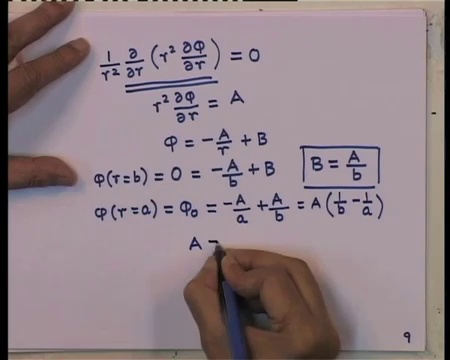 1/r² ∂/∂r (r² ∂φ/∂r) = 0
r² ∂φ/∂r = A
φ = -A/r + B
φ(r=b) = 0 = -A/b + B    B = A/b
φ(r=a) = φ₀ = -A/a + A/b = A(1/b - 1/a)
A =
9